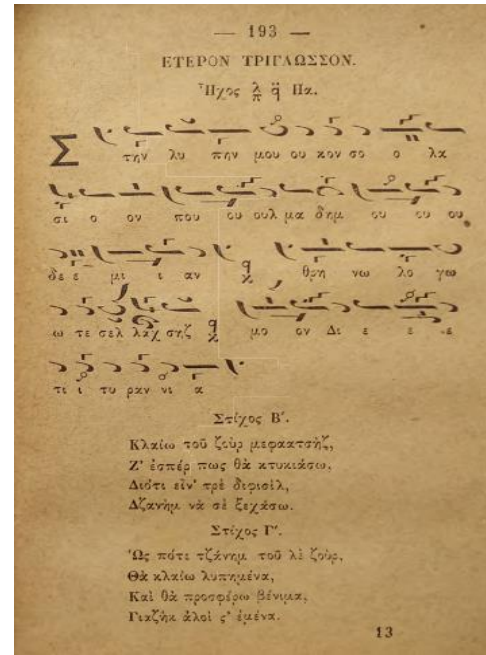 — 193 —
ΕΤΕΡΟΝ ΤΡΙΓΛΩΣΣΟΝ.
Ἦχος λ π q Πα.
Σ την λυ πην μου ου κον σο ο λα
σι ο ον που ου ουλ μα δημ ου ου ου
δε ε μι ι αν θρη νω λο γω
ω τε σελ λαχ σηζ μο ον Δι ε ε ε
τι ι τυ ραν νι α
Στίχος Β΄.
Κλαίω τοῦ ζοὺρ μεφαατσὴζ,
Ζ' ἐσπέρ πως θὰ κτυκιάσω,
Διότι εἶν' τρὲ διφισὶλ,
Δζανὴμ νὰ σὲ ξεχάσω.
Στίχος Γ΄.
Ὡς πότε τζάνημ τοῦ λὲ ζοὺρ,
Θὰ κλαίω λυπημένα,
Καὶ θὰ προσφέρω βένιμα,
Γιαζὴκ ἀλοὶ ς' ἐμένα.
13